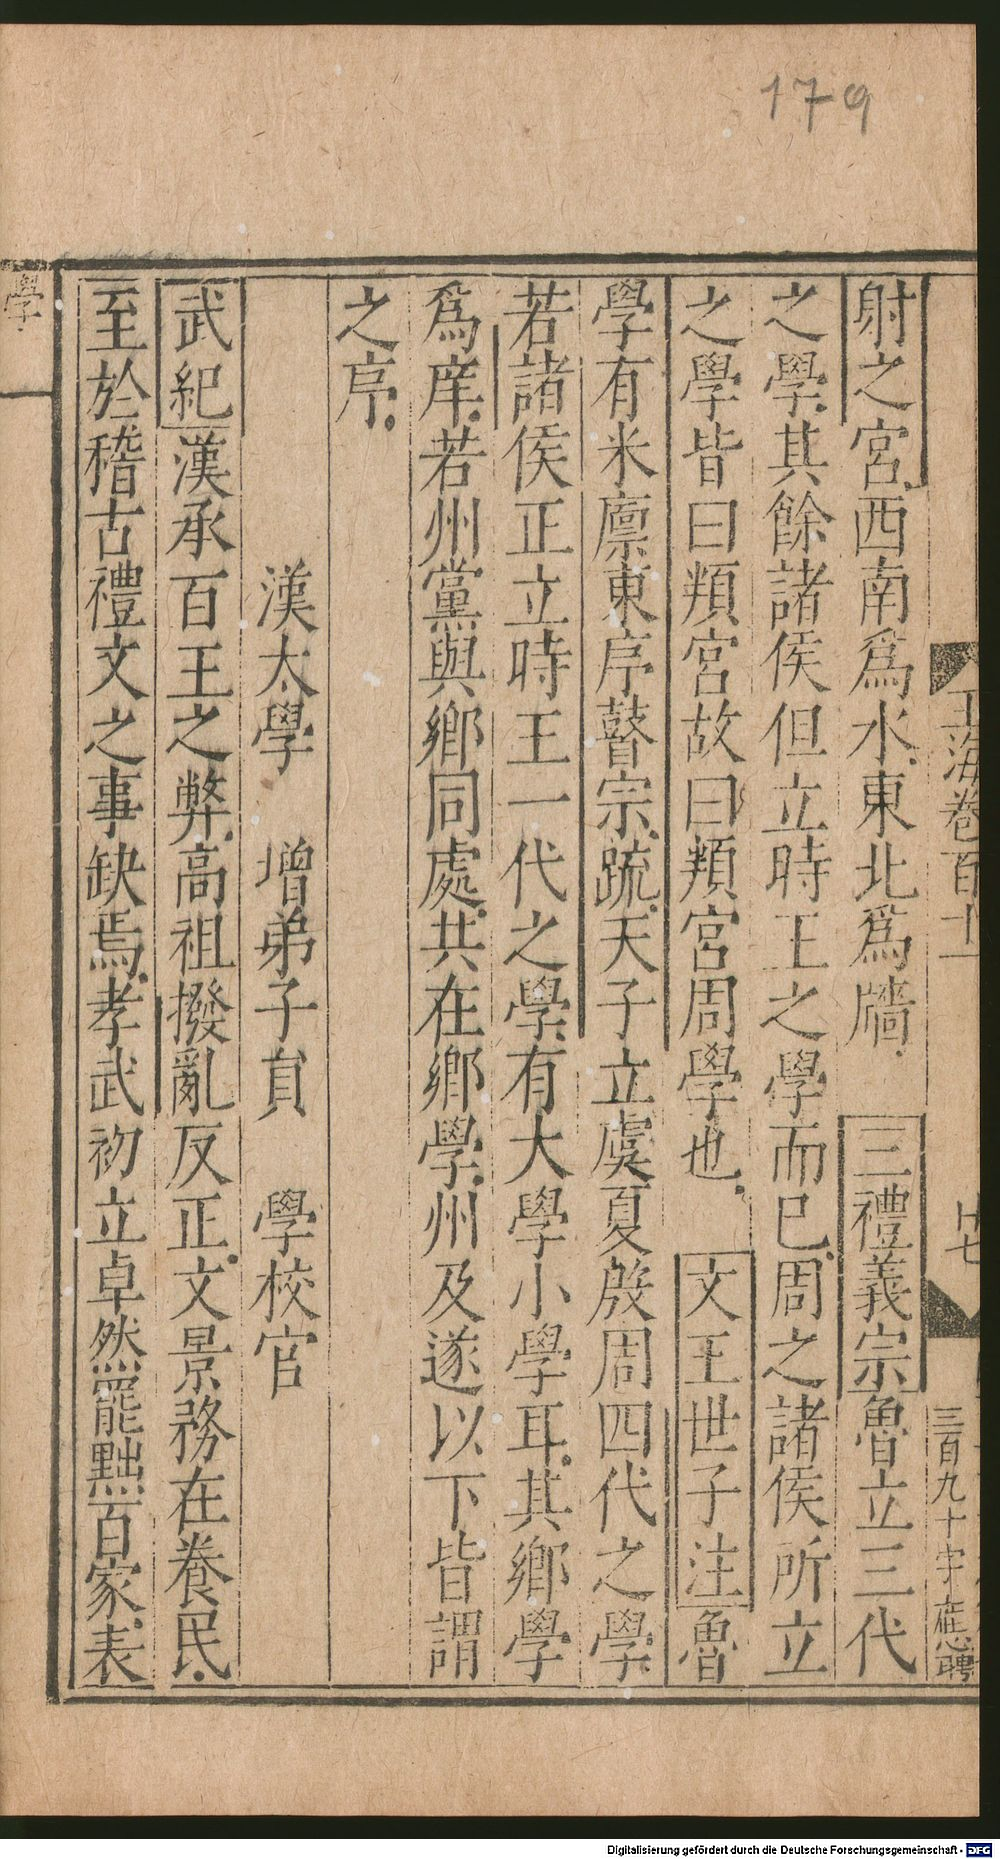 179
玉海卷百十一
十七
三百九十字
射之宮西南爲水東北爲牆 三禮義宗魯立三代
之學其餘諸侯但立時王之學而已周之諸侯所立
之學皆曰頖宮故曰頖宮周學也 文王世子注魯
學有米廪東序瞽宗疏天子立虞夏殷周四代之學
若諸侯正立時王一代之學有大學小學耳其鄉學
爲庠若州黨與鄉同處共在鄉學州及遂以下皆謂
之序
漢太學 增弟子貟 學校官
武紀漢承百王之弊高祖撥亂反正文景務在養民
至於稽古禮文之事缺焉孝武初立卓然罷黜百家表
學
Digitalisierung gefördert durch die Deutsche Forschungsgemeinschaft - DFG